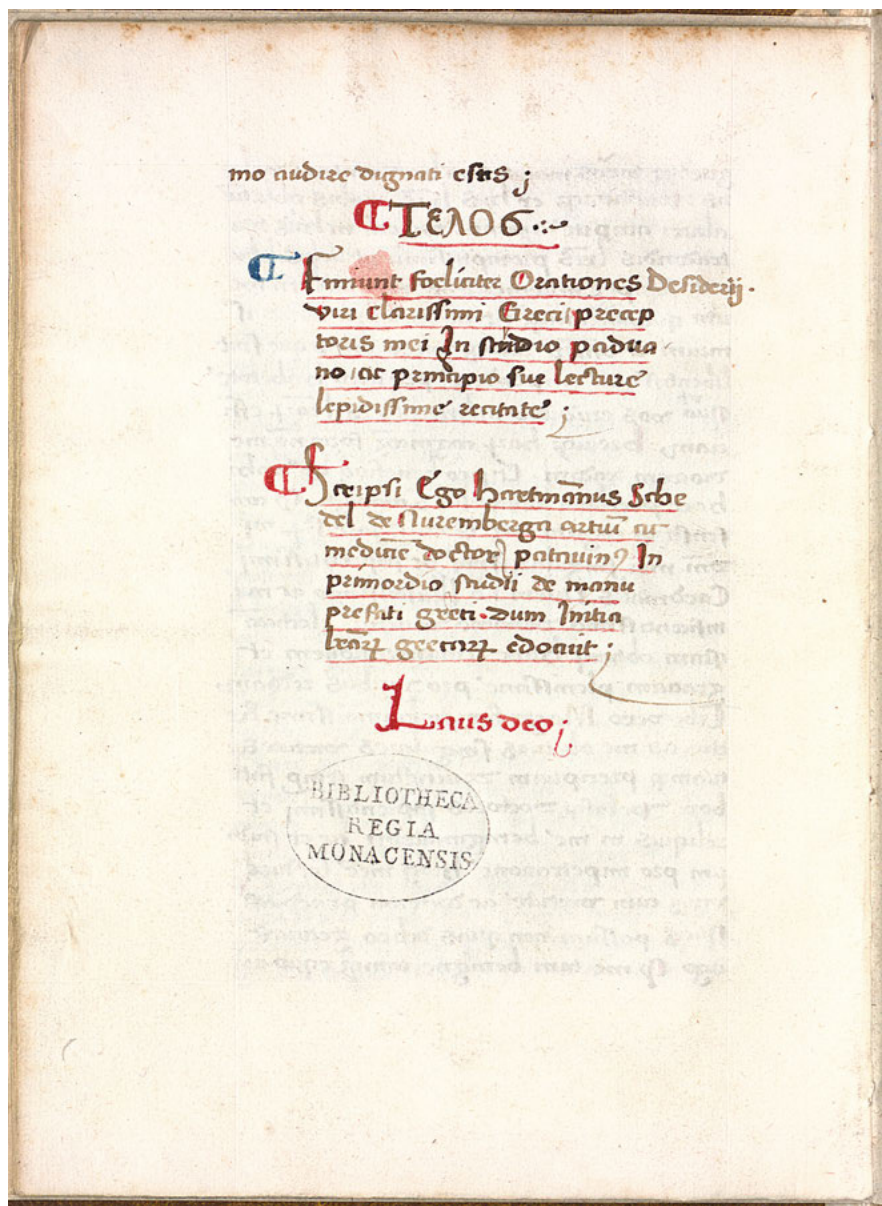 mo audire dignati estis ;
ΤΕΛΟϬ
Finiunt foeliciter Orationes Desiderij .
viri clarissimi Greci precep
toris mei In studio padua
no ac principio sue lecture
lepidissime recitate ;
Scripsi Ego hartmānus Sche
del de Nuremberga artiū ac
medicīe doctor patauinꝰ In
primordio studii de manu
prefati greci . dum Initia
lr̄aꝝ grecarꝝ edocuit ;
Laus deo ;
BIBLIOTHECA
REGIA
MONACENSIS